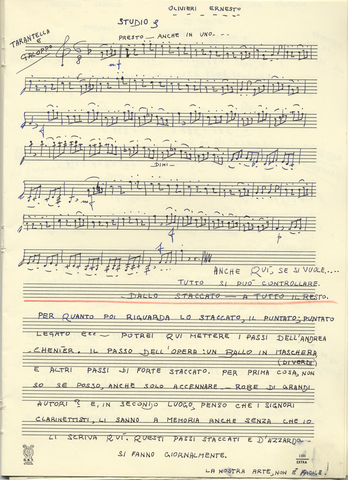 OLIVIERI ERNESTO
STUDIO 3
TARANTELLA
E
GALOPPO
PRESTO - ANCHE IN UNO. - - -
6
8
mf
DIM:
ANCHE QUÌ, SE SI VUOLE.....
TUTTO SI PUÒ CONTROLLARE.
DALLO STACCATO - A TUTTO IL RESTO.
PER QUANTO POI RIGUARDA LO STACCATO, IL PUNTATO, PUNTATO
LEGATO ECC - POTREI QUI METTERE I PASSI DELL'ANDREA
CHENIER. IL PASSO DELL'OPERA: UN BALLO IN MASCHERA
(DIVERTS)
E ALTRI PASSI DI FORTE STACCATO. PER PRIMA COSA, NON
SO SE POSSO, ANCHE SOLO ACCENNARE - ROBE DI GRANDI
AUTORI? E, IN SECONDO LUOGO, PENSO CHE I SIGNORI
CLARINETTISTI, LI SANNO A MEMORIA ANCHE SENZA CHE IO
LI SCRIVA QUI. QUESTI PASSI STACCATI E D'AZZARDO
SI FANNO GIORNALMENTE.
LA NOSTRA ARTE, NON È FACILE!
EXTRA